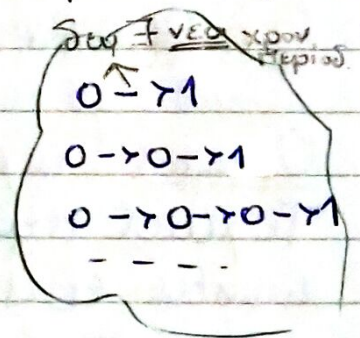 δοθ ∓ νέα χρον.
περιοδ.
0 -> 1
0 -> 0 -> 1
0 -> 0 -> 0 -> 1
- - - -